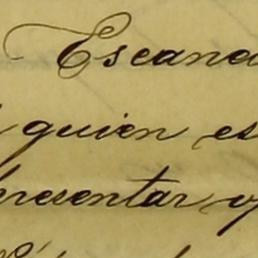 Escand
quien es
presentar y